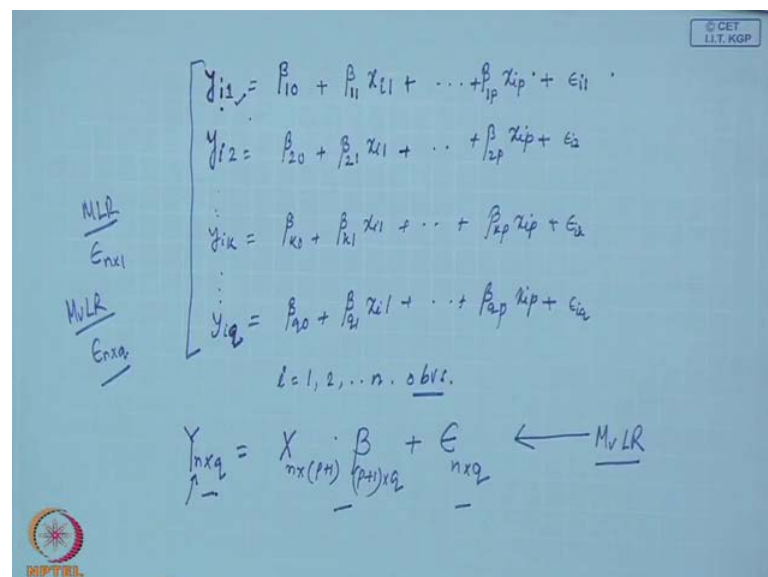 © CET
I.I.T. KGP
y_i1 = β_10 + β_11 x_i1 + ... + β_1p x_ip + ε_i1
y_i2 = β_20 + β_21 x_i1 + .. + β_2p x_ip + ε_i2
⋮
y_ik = β_k0 + β_k1 x_i1 + ... + β_kp x_ip + ε_ik
⋮
y_iq = β_q0 + β_q1 x_i1 + ... + β_qp x_ip + ε_iq
MLR
ε_n×1
MvLR
ε_n×q
i = 1, 2, .. n. obvs.
Y_n×q = X_n×(p+1) β_(p+1)×q + ε_n×q ← MvLR
NPTEL